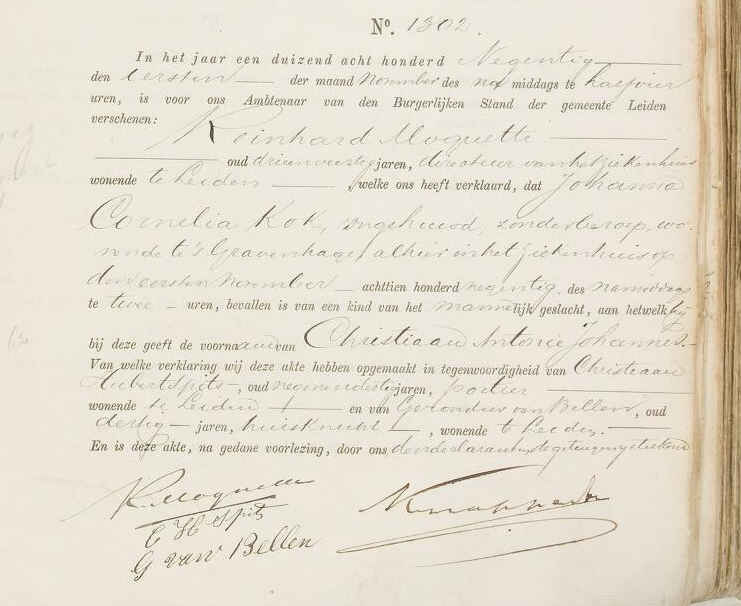 No. 1302.
In het jaar een duizend acht honderd Negentig
den eersten der maand November des na middags te half vier
uren, is voor ons Ambtenaar van den Burgerlijken Stand der gemeente Leiden
verschenen:
Reinhard Moquette
oud drieenveertig jaren, directeur van het ziekenhuis
wonende te Leiden, welke ons heeft verklaard, dat Johanna
Cornelia Kok, ongehuwd, zonder beroep, wo-
nende te 's Gravenhage, alhier in het ziekenhuis op
den eersten November achttien honderd negentig des namiddags
te twee uren, bevallen is van een kind van het mannelijk geslacht, aan hetwelk hij
bij deze geeft de voornamen van Christiaan Antonie Johannes
Van welke verklaring wij deze akte hebben opgemaakt in tegenwoordigheid van Christiaan
Hubert Spits, oud negenendertig jaren, portier
wonende te Leiden en van Gerondus van Bellen, oud
dertig jaren, huisknecht, wonende te Leiden.
En is deze akte, na gedane voorlezing, door ons, den declarant en de getuigen geteekend
R Moquette
C H Spits
G van Bellen